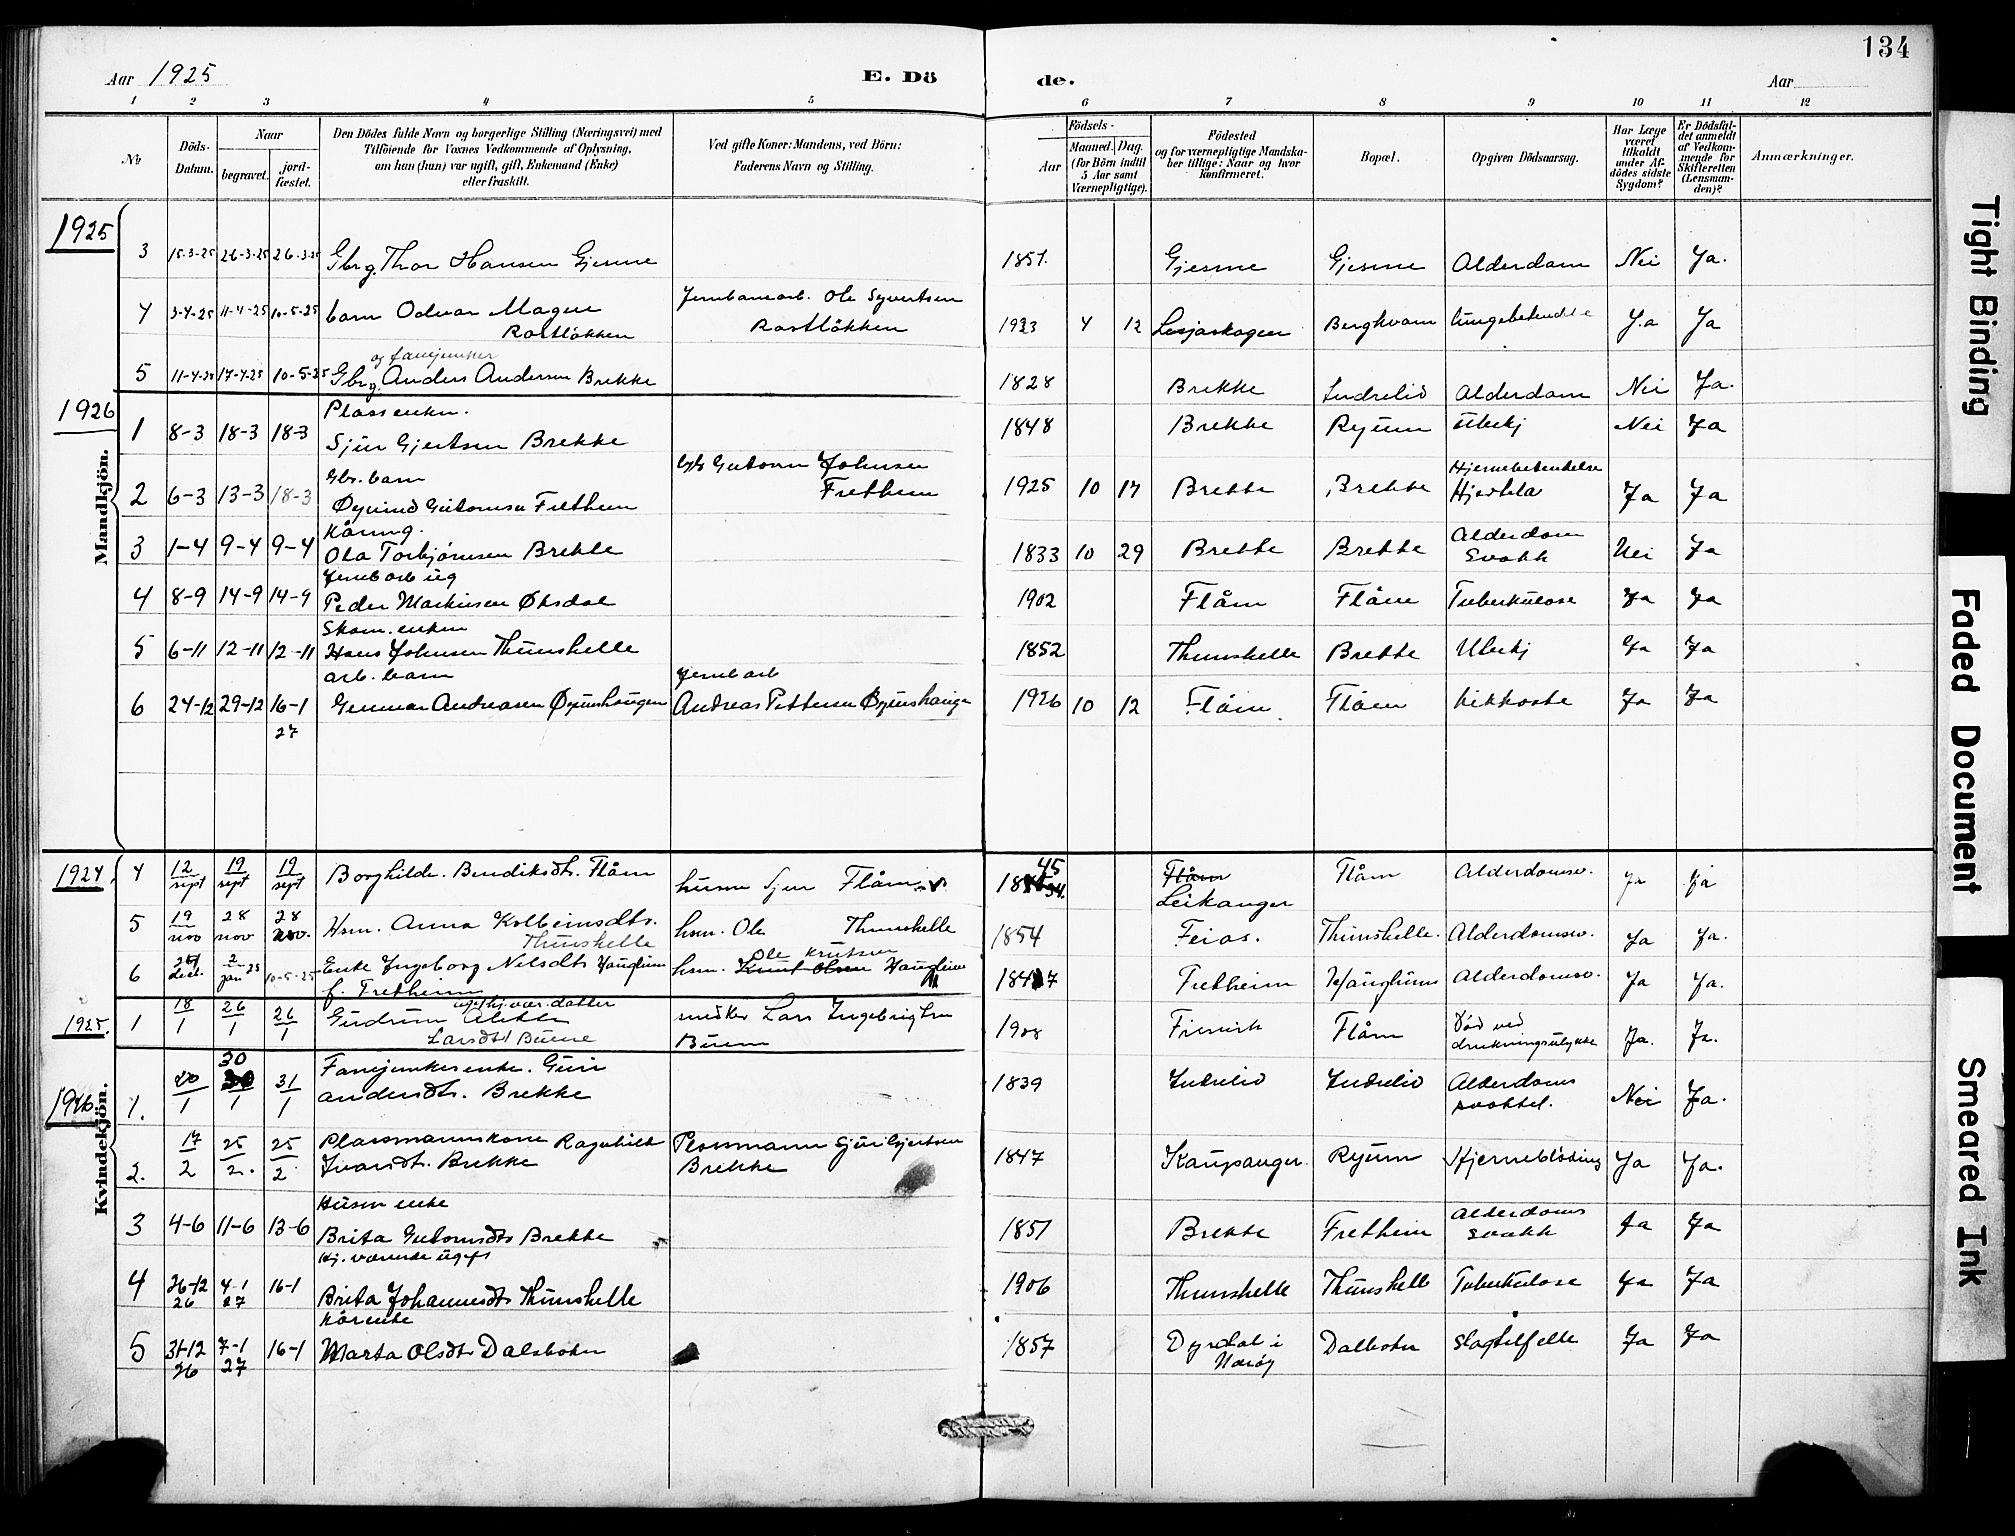 134
Aar 1925
E. Dö
de.
Aar
1 2 3 4 5 6 7 8 9 10 11 12
No
Döds-Datum.
Naar
begravet.
jord-fæstet.
Den Dödes fulde Navn og borgerlige Stilling (Næringsvei) med
Tilföiende for Voxnes Vedkommende af Oplysning,
om han (hun) var ugift, gift, Enkemand (Enke)
eller fraskilt.
Ved gifte Koner: Mandens, ved Börn:
Faderens Navn og Stilling.
Födsels-
Aar
Maaned. Dag.
(for Börn indtil
5 Aar samt
Værnepligtige).
Födested
og for værnepligtige Mandska-
ber tillige: Naar og hvor
konfirmeret.
Bopæl.
Opgiven Dödsaarsag.
Har Læge
været
tilkaldt
under Af-
dödes sidste
Sygdom?
Er Dödsfal-
det anmeldt
af Vedkom-
mende for
Skifteretten
(Lensman-
den)?
Anmærkninger.
Mandkjön.
1925
3 15-3-25 26-3-25 26-3-25 Gbrg. Thor Hansen Gjerme 1851. Gjerme Gjerme Alderdom Nei Ja.
4 3-4-25 11-4-25 10-5-25 barn Odvar Magne Jernbanearb. Ole Syvertsen
Rostløkken Rostløkken 1923 4 12 Lesjaskogen Berghvam Lungebetendelse Ja Ja
og fanejunker
5 11-4-25 17-4-25 10-5-25 Gbrg. Anders Andersen Brekke 1828 Brekke Indrelid Alderdom Nei Ja.
1926
Plassenkm.
1 8-3 18-3 18-3 Sjur Gjertsen Brekke 1848 Brekke Ryum Ubekj Nei Ja
Gbr. barn Gbr Gutorm Johnsen
Fretheim Hjernebetendelse
2 6-3 13-3 18-3 Øyvind Gutormsen Fretheim 1925 10 17 Brekke Brekke Ja Ja
Kårmg.
3 1-4 9-4 9-4 Ola Torbjørnsen Brekke 1833 10 29 Brekke Brekke Alderdom
Svakh Nei Ja
Jernb arb ug
4 8-9 14-9 14-9 Peder Markusen 1902 Flåm Flåm Tuberkulose Ja Ja
Skom. enkm
5 6-11 12-11 12-11 Hans Johnsen Thunshelle 1852 Thunshelle Brekke Ubekj Ja Ja
arb. barn Jernb arb
6 24-12 29-12 16-1 Gunnar Andreasen Øyunshaugen Andreas Pettersen Øyunshaugen 1926 10 12 Flåm Flåm Kikhoste Ja Ja
27
Kvindekjön.
1924.
4 12 sept 19 sept 19 sept Borghilde Bendiksdtr. Flåm husm Sjur Flåm 45 Flåm
Leikanger Flåm Alderdomsv. Ja Ja
5 19 nov 28 nov 28 nov. Hsm. Anna Kolbeinsdtr. hsm. Ole Thunshelle 1854 Feios. Thunshelle. Alderdomsv. Ja Ja.
Thunshelle
Ole Knutsen
6 decb. 2 jan 25 10-5-25 Enke Ingeborg Nilsdtr Haugheim hsm. Knut Olsen Haugheim 1847 Fretheim Haugheim Alderdomsv. Ja Ja.
f. Fretheim
1925.
ugift hj.vær. datter
1 18/1 26/1 26/1 Gudrun snedker Lars Ingebrigtsen 1908 Flåm Død ved
drukningsulykke Ja. Ja.
Larsdtr Buene Buene
1926.
1. 20/1 30/1 31/1 Fanejunkerenke. Guri
Andersdtr. Brekke 1839 Indrelid Indrelid Alderdoms
svakhet. Nei Ja.
2. 17/2 25/2. 25/2 Plassmannskone Ragnhild
Ivarsdtr. Brekke Plassmann Sjur Gjertsen
Brekke 1847 Kaupanger. Ryum Hjerneblødning Ja Ja.
Husm enke
3 4-6 11-6 13-6 Brita Gutormsdtr Brekke 1851 Brekke Fretheim Alderdoms
Svakh Ja Ja
Hj. værende ugift
4 26-12 26 4-1 27 16-1 Brita Johannesdtr Thunshelle 1906 Thunshelle Thunshell Tuberkulose Ja Ja
Kårenke
5 31-12 26 7-1 27 16-1 Marta Olsdtr Dalsbotn 1857 Dyrdal i
Nærøy Dalbotn Slagtilfelle Ja Ja
Tight Binding
Faded Document
Smeared Ink